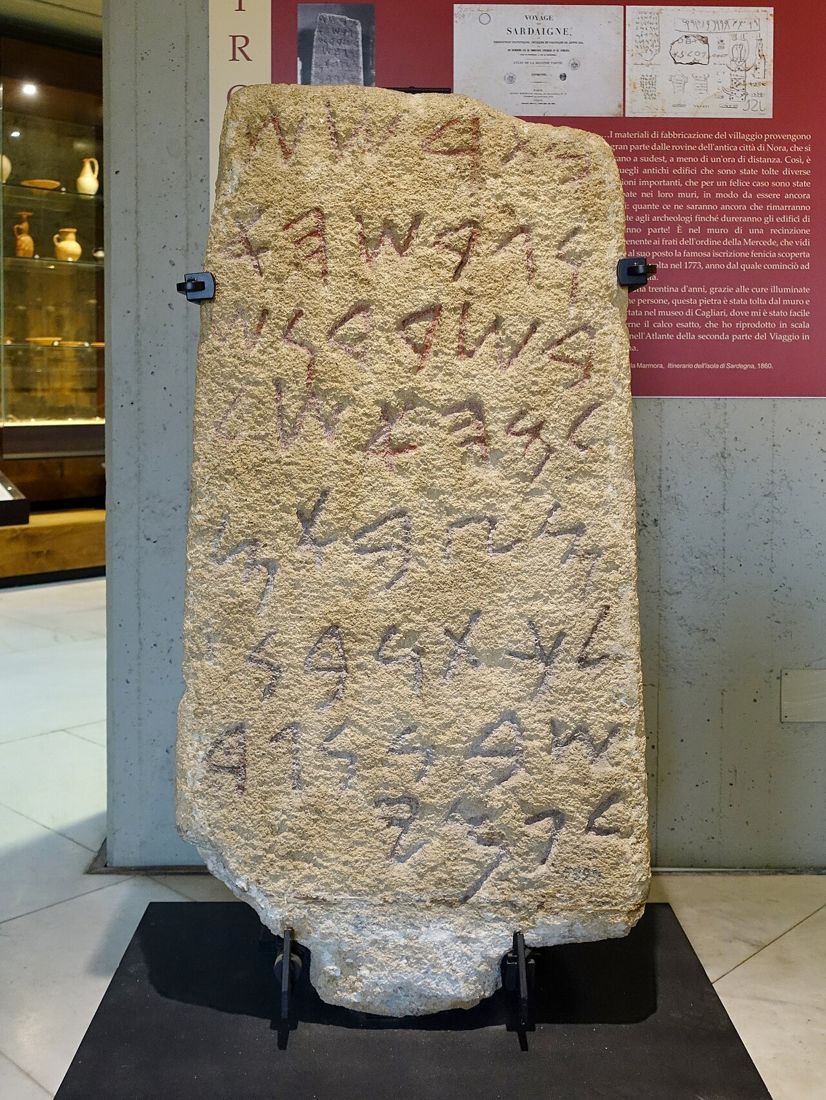 VOYAGE
SARDAIGNE,
𐤁𐤕𐤓𐤔𐤔
𐤅𐤂𐤓𐤔𐤄𐤀
𐤁𐤔𐤓𐤃𐤍𐤔
𐤋𐤌𐤄𐤀𐤔𐤋
𐤌𐤑𐤁𐤀𐤌
𐤋𐤊𐤕𐤍𐤁𐤍
𐤔𐤁𐤍𐤍𐤂𐤃
𐤋𐤐𐤌𐤉
...I materiali di fabbricazione del villaggio provengono
gran parte dalle rovine dell'antica città di Nora, che si
a sudest, a meno di un'ora di distanza. Così, è
antichi edifici che sono state tolte diverse
importanti, che per un felice caso sono state
nei loro muri, in modo da essere ancora
quante ce ne saranno ancora che rimarranno
agli archeologi finché dureranno gli edifici di
parte! È nel muro di una recinzione
ai frati dell'ordine della Mercede, che vidi
al suo posto la famosa iscrizione fenicia scoperta
nel 1773, anno dal quale cominciò ad
trentina d'anni, grazie alle cure illuminate
persone, questa pietra è stata tolta dal muro e
nel museo di Cagliari, dove mi è stato facile
il calco esatto, che ho riprodotto in scala
nell'Atlante della seconda parte del Viaggio in
Marmora, Itinerario dell'isola di Sardegna, 1860.